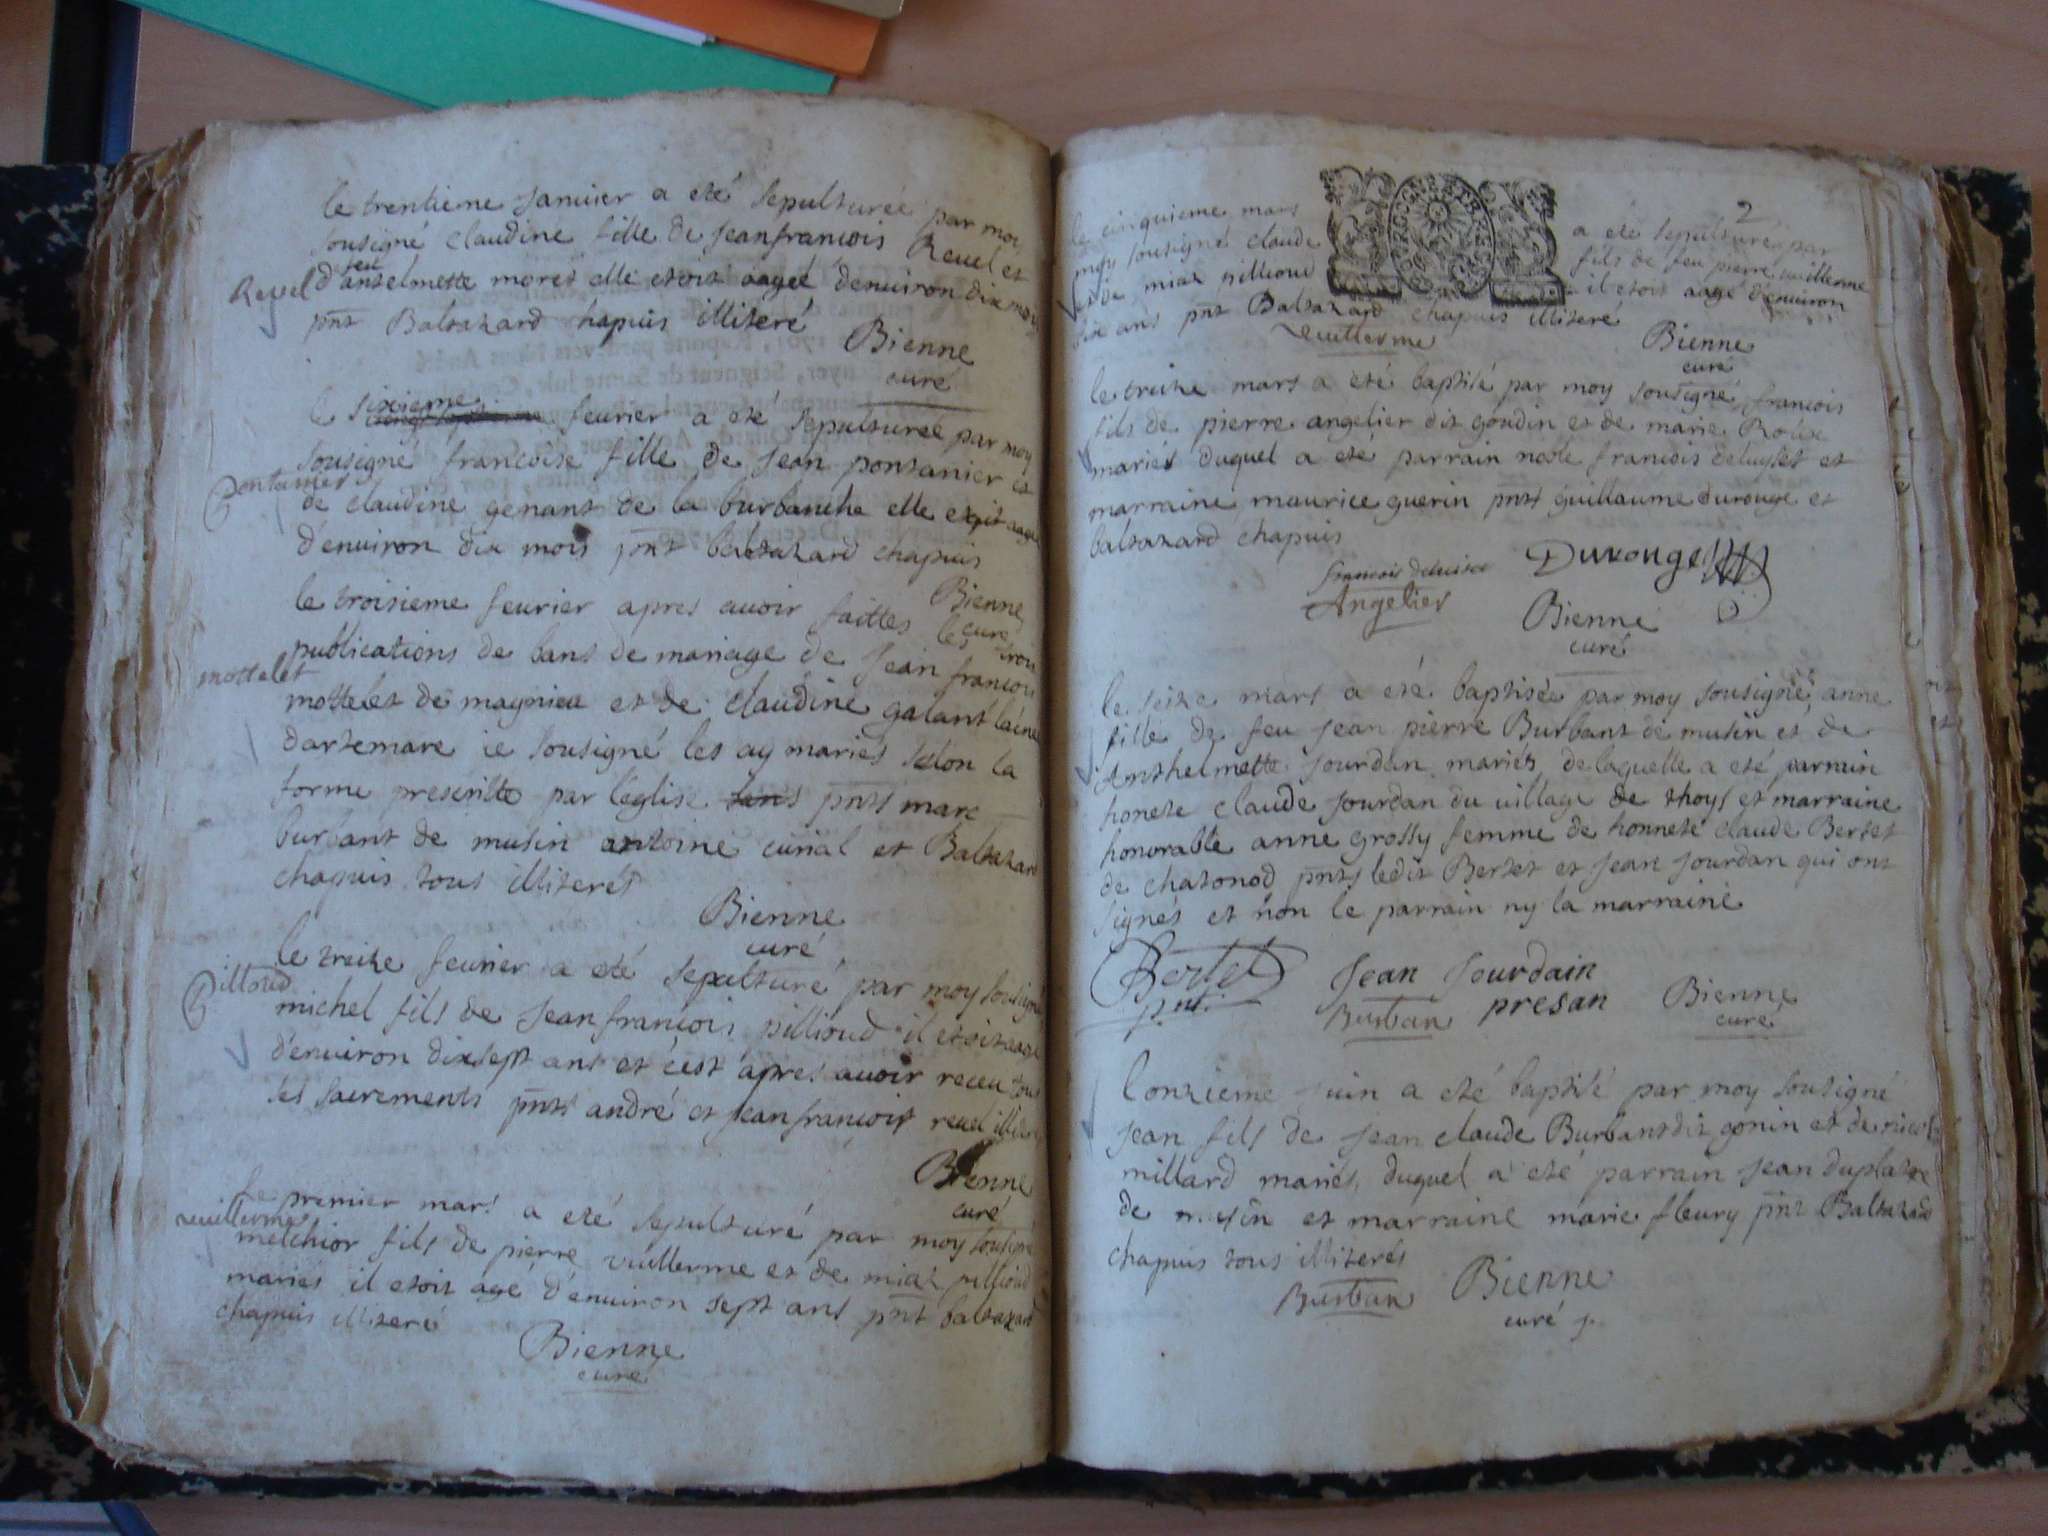 le trentieme Janvier a eté sepulturée par moy
sousigné claudine fille de Jeanfrancois Revel et
Revel
feu
d'anselmette morel elle etoit aagée d'environ dix mois
pnt Baltazard chapuis illiteré
Bienne
curé
le sixieme fevrier a eté sepulturée par moy
sousigné francoise fille de Jean pontanier et
Pontanier
de claudine genant de la burbanche elle etoit aagée
d'environ dix mois pnt baltazard chapuis
Bienne
curé
le troisieme fevrier apres avoir faittes les trois
publications de bans de mariage de Jean francois
mottelet
mottelet de magnieu et de claudine galant lainé
dartemare ie sousigné les ay mariés selon la
forme prescritte par l'eglise pnts marc
burbant de musin antoine curial et Baltazard
chapuis tous illiterés
Bienne
curé
le treize fevrier a eté sepulturé par moy sousigné
Pillioud
michel fils de Jeanfrancois pillioud il etoit aagé
d'environ dixsept ans et c'est apres avoir receu tous
les sacrements pnts andré et Jeanfrancois revel illiterés
Bienne
curé
le premier mars a eté sepulturé par moy sousigné
vuillerme
melchior fils de pierre vuillerme et de miaz pillioud
mariés il etoit agé d'environ sept ans pnt baltazard
chapuis illiteré
Bienne
curé
2
le cinquieme mars a eté sepulturé par
moy sousigné claude fils de feu pierre vuillerme
et de miaz pillioud il etoit aagé d'environ
dix ans pnt Baltazard chapuis illiteré
vuillerme
Bienne
curé
le treize mars a eté baptisé par moy sousigné francois
fils de pierre angelier dit goudin et de marie
mariés duquel a eté parrain noble francois deluyset et
marraine maurice guerin pnts guillaume durouge et
baltazard chapuis
francois
Durouge
Angelier
Bienne
curé
le seize mars a eté baptisée par moy sousigné anne
fille de feu Jean pierre Burbant de musin et de
Anthelmette Jourdan mariés de laquelle a eté parrain
honete claude Jourdan du village de thoys et marraine
honorable anne grossy femme de honneté claude Bertet
de chatonod pnts ledit Bertet et Jean Jourdan qui ont
signés et non le parrain ny la marraine
Bertet
pnt
Jean Jourdain
presan
Burban
Bienne
curé
l'onzieme Juin a eté baptisé par moy sousigné
Jean fils de Jean claude Burbant dit gonin et de nicole
millard mariés, duquel a eté parrain Jean duplatre
de musin et marraine marie fleury pnt Baltazard
chapuis tous illiterés
Burban
Bienne
curé